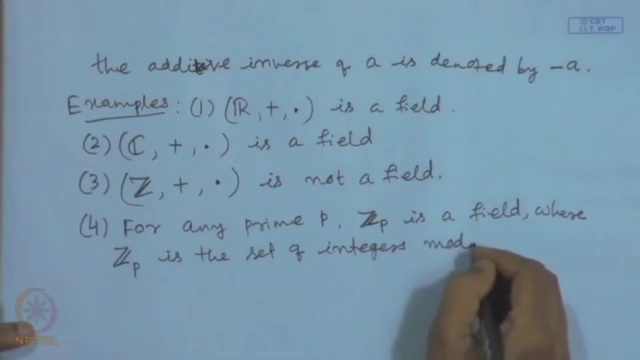 © CET
I.I.T. KGP
the additive inverse of a is denoted by -a.
Examples: (1) (ℝ, +, ·) is a field.
(2) (ℂ, +, ·) is a field
(3) (ℤ, +, ·) is not a field.
(4) For any prime p, ℤp is a field, where
ℤp is the set of integers mod
NPTEL